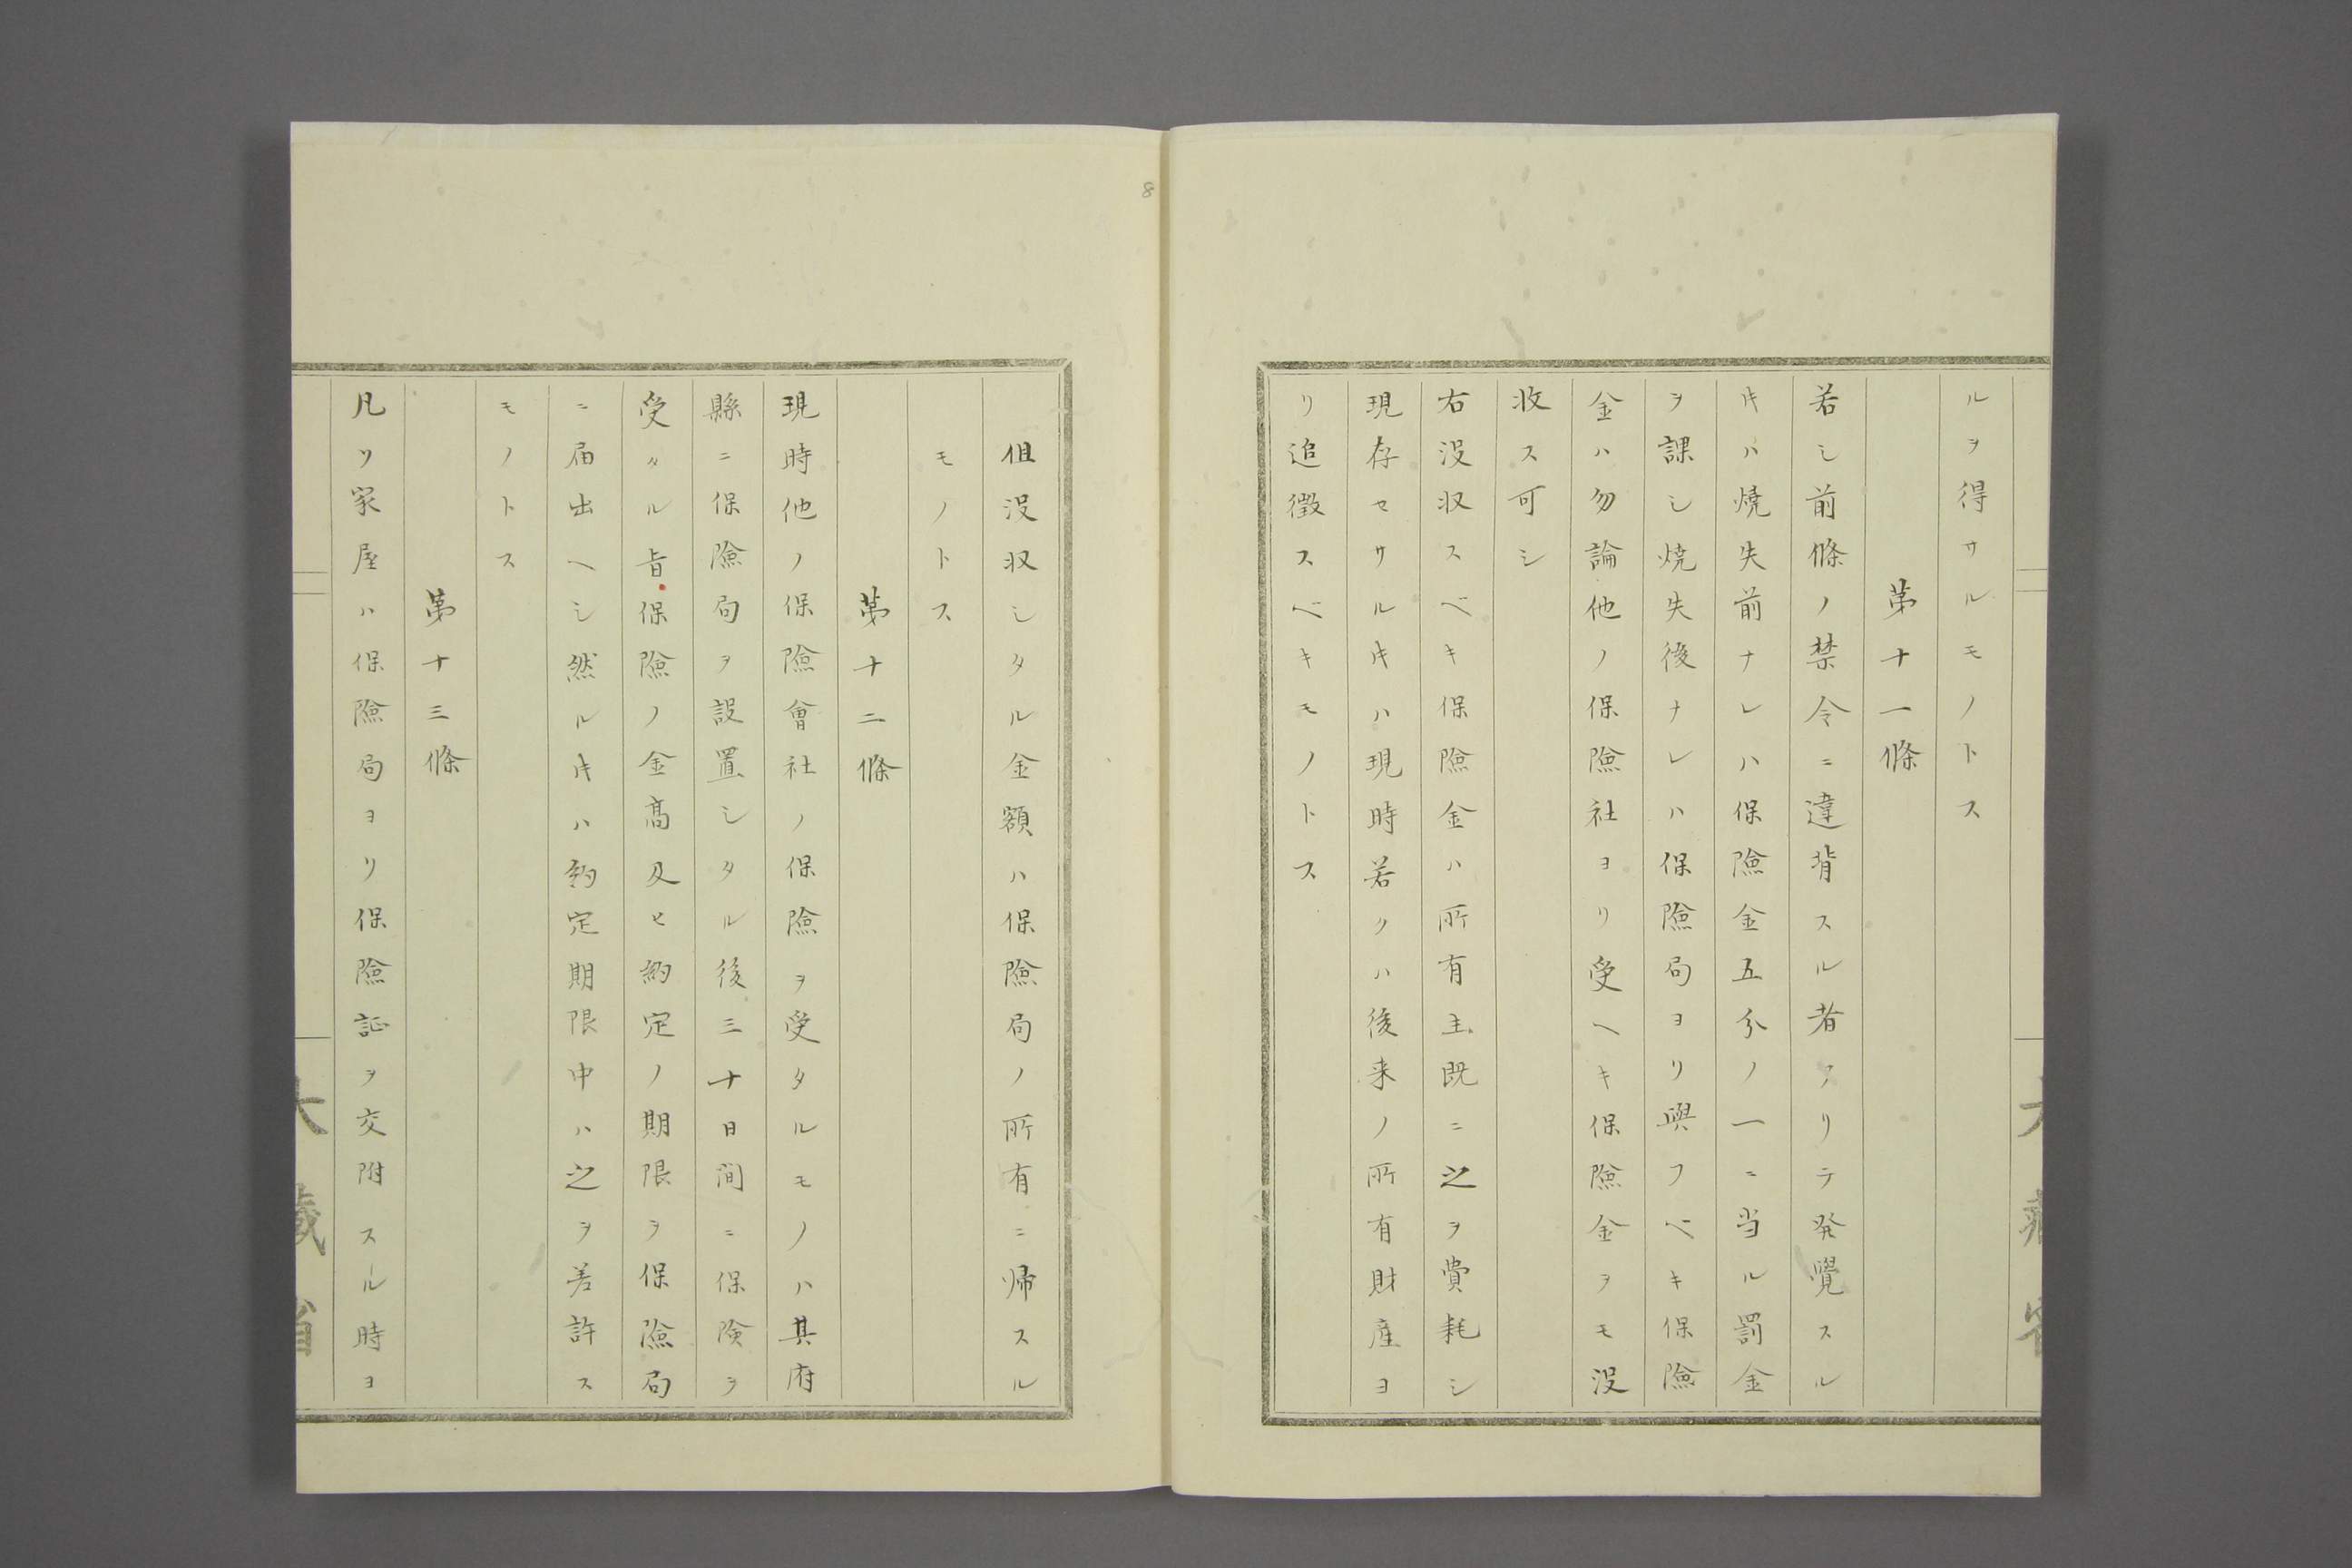 ルヲ得サルモノトス
第十一條
若シ前條ノ禁令ニ違背スル者アリテ発覺スル
𪜈ハ燒失前ナレハ保險金五分ノ一ニ当ル罰金
ヲ課シ焼失後ナレハ保險局ヨリ與フベキ保險
金ハ勿論他ノ保險社ヨリ受ヘキ保險金ヲモ没
收ス可シ
右没収スベキ保險金ハ所有主既ニ之ヲ費耗シ
現存セサル𪜈ハ現時若クハ後来ノ所有財産ヨ
リ追徴スベキモノトス
8
但没収シタル金額ハ保險局ノ所有ニ帰スル
モノトス
第十二條
現時他ノ保險會社ノ保險ヲ受タルモノハ其府
縣ニ保險局ヲ設置シタル後三十日间ニ保険ヲ
受タル旨保險ノ金高及ヒ約定ノ期限ヲ保險局
ニ届出ヘシ然ル𪜈ハ約定期限中ハ之ヲ差許ス
モノトス
第十三條
凡ソ家屋ハ保險局ヨリ保險証ヲ交附スル時ヨ
大藏省